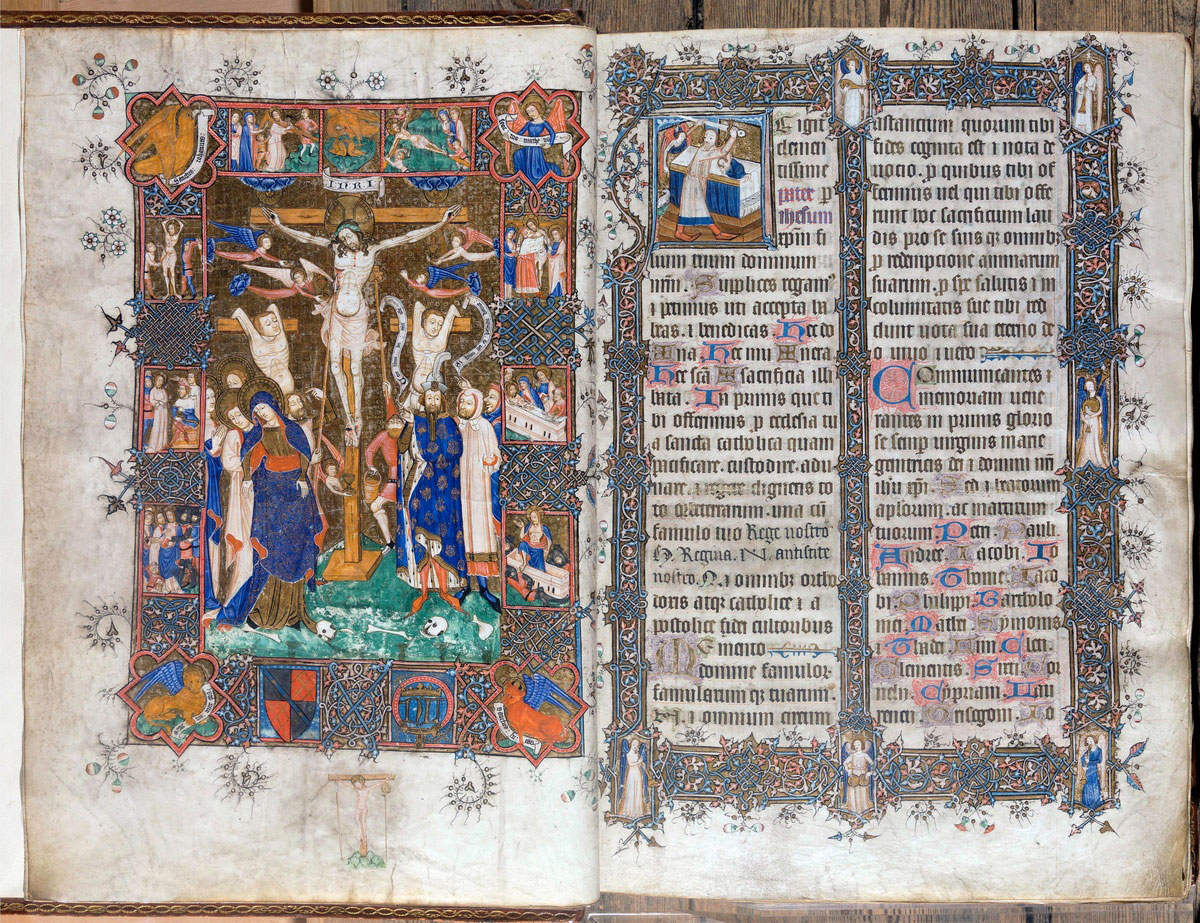 INRI
Te igit
clemen
tissime
pater p
ihesum
xpm fi
lium tuum dominum
nrm. Supplices rogam
ac petimus uti accepta ha
beas. et benedicas. Hec do
na Hec munera
Hec sca sacrificia illi
bata. In primis que ti
bi offerimus p ecclesia tu
a sancta catholica quam
pacificare. custodire. adu
nare. et regere digneris to
to orbe terrarum. una cu
famulo tuo Rege nostro
N. Regina. N. antistite
nostro. N. et omnibz ortho
doxis atqz catholice et a
postolice fidei cultoribus
Memento
domine famulor
famularum qz tuarum
N. et omnium circum
astancium quorum tibi
fides cognita est et nota de
uocio. p quibus tibi of
ferimus uel qui tibi offe
runt hoc sacrificium lau
dis pro se suis qz omnibz
p redempcione animarum
suarum. p spe salutis et in
columitatis sue tibi red
dunt uota sua eterno de
o uiuo et uero
Communicantes et
memoriam uene
rantes in primis glorio
se semp uirginis marie
genitricis dei et domini nri
ihu xpi. Sed et beatorum
aplorum. ac martirum
tuorum Petri Pauli
Andree Jacobi. Io
hannis Thome. Jaco
bi. Philippi. Bartholo
mei. Mathei Symonis
et Thadei Lini Cleti
Clementis Sixti Cor
nelij. Cypriani. Lau
rencij. Grisogoni. Io